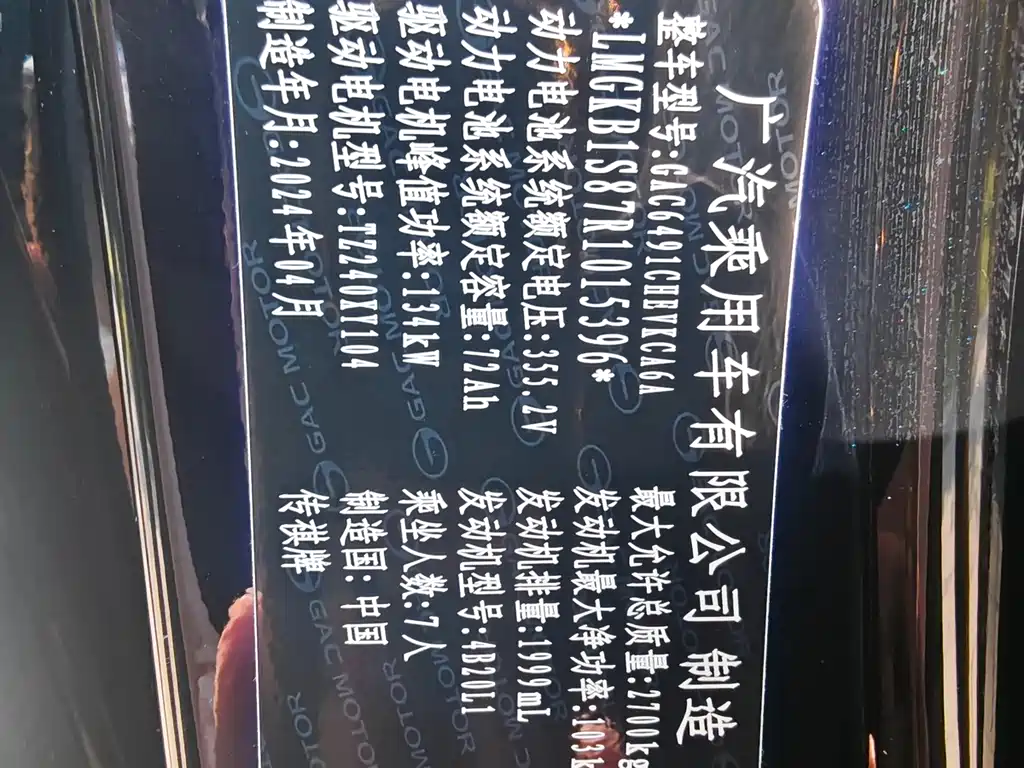 广汽乘用车有限公司 制造
整车型号:GAC6491CHEVKCA6A
*LMGKB1S87R1015396*
动力电池系统额定电压:355.2V
动力电池系统额定容量:72Ah
驱动电机峰值功率:134kW
驱动电机型号:TZ240XY104
制造年月:2024年04月
最大允许总质量:2700kg
发动机最大净功率:103k
发动机排量:1999mL
发动机型号:4B20L1
乘坐人数:7人
制造国:中国
传祺牌
GAC MOTOR